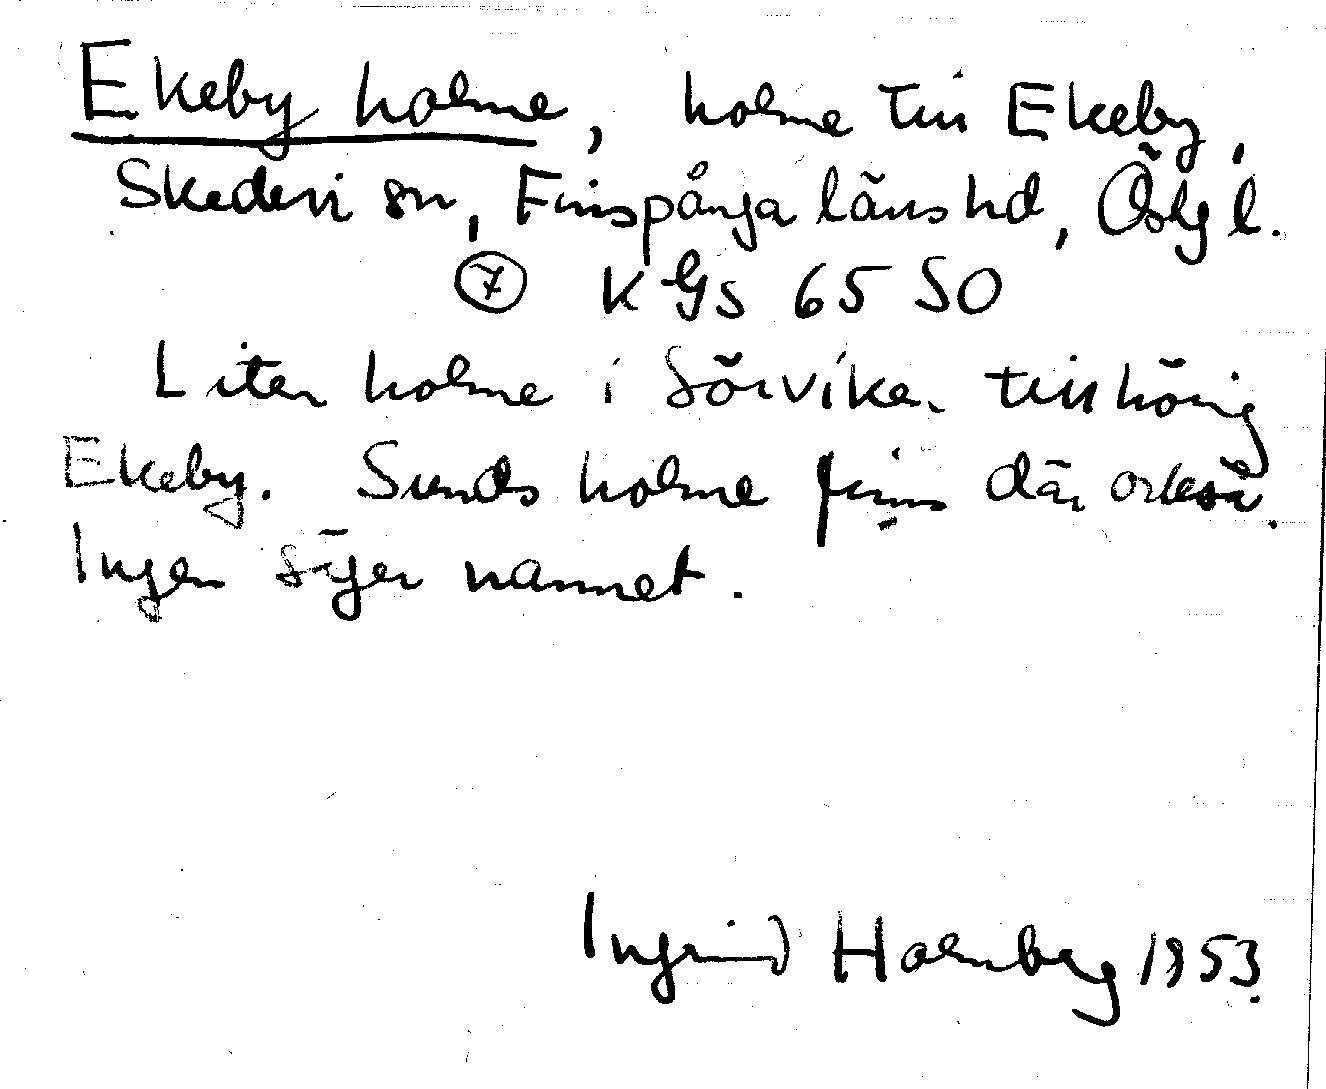 Ekeby holme, holme till Ekeby,
Skedevi sn, Finspånga läns hd, Östg l.
7 K Gs 65 50
Liten holme i Sörviken tillhörig
Ekeby. Sunds holme finns där också.
Ingen säger namnet.
Ingrid Holmberg 1953.